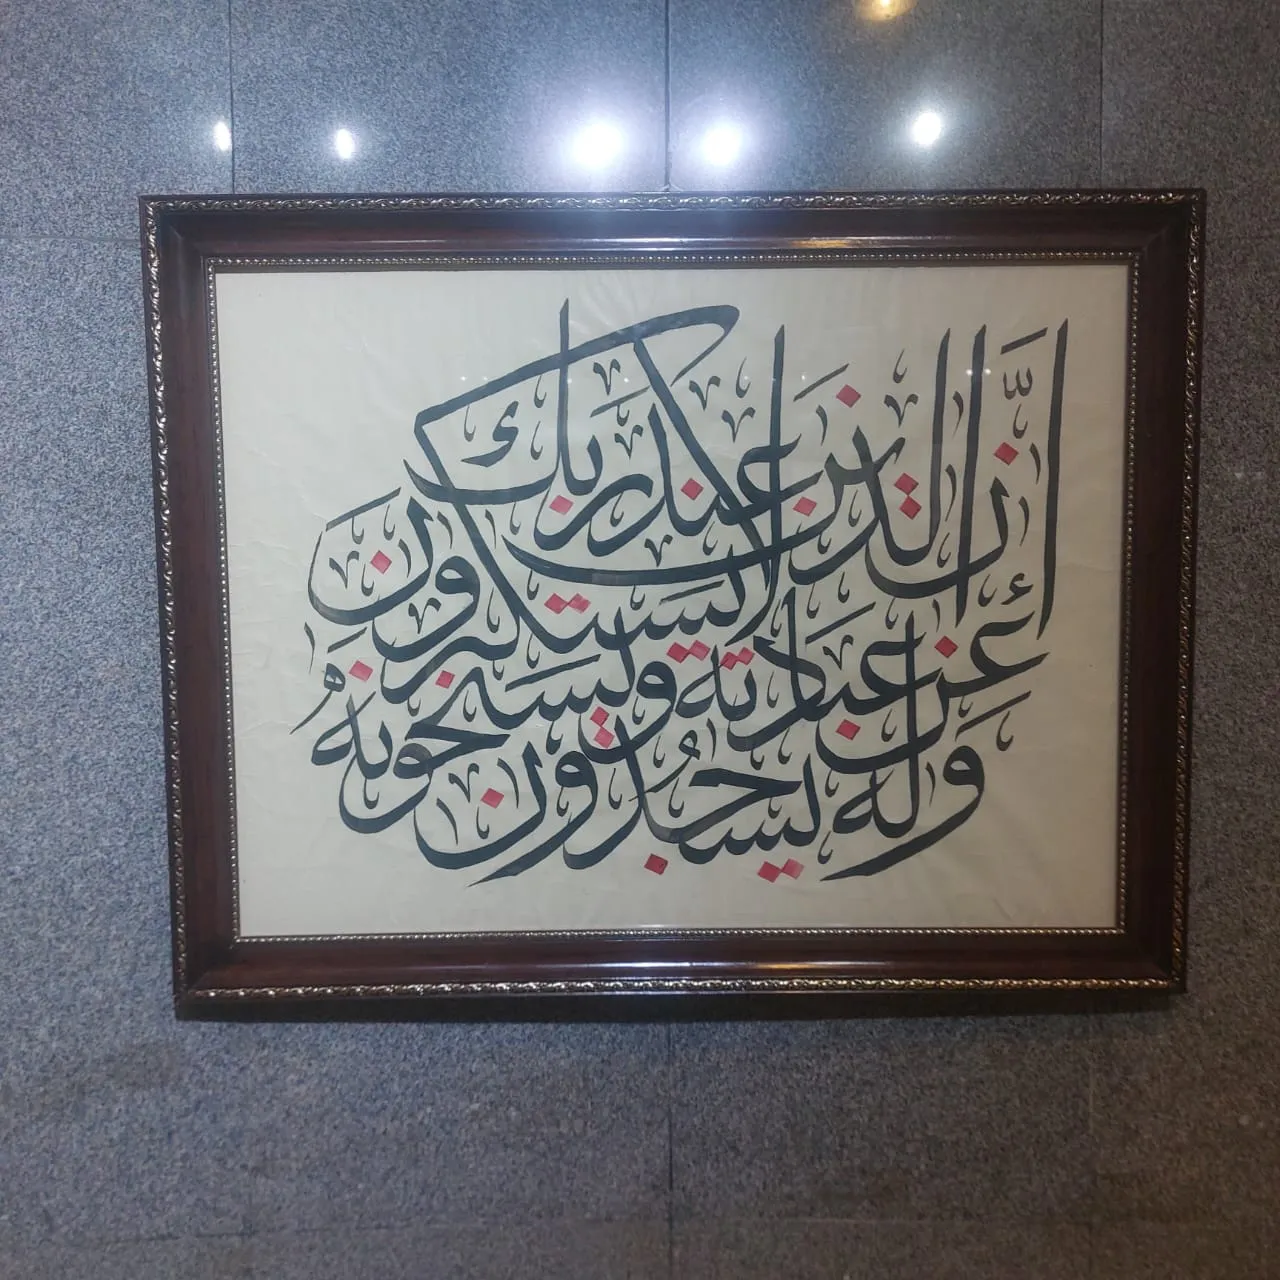 إنّ الذين عند ربك لا يستكبرون
عن عبادته ويسبحونه
وله يسجدون